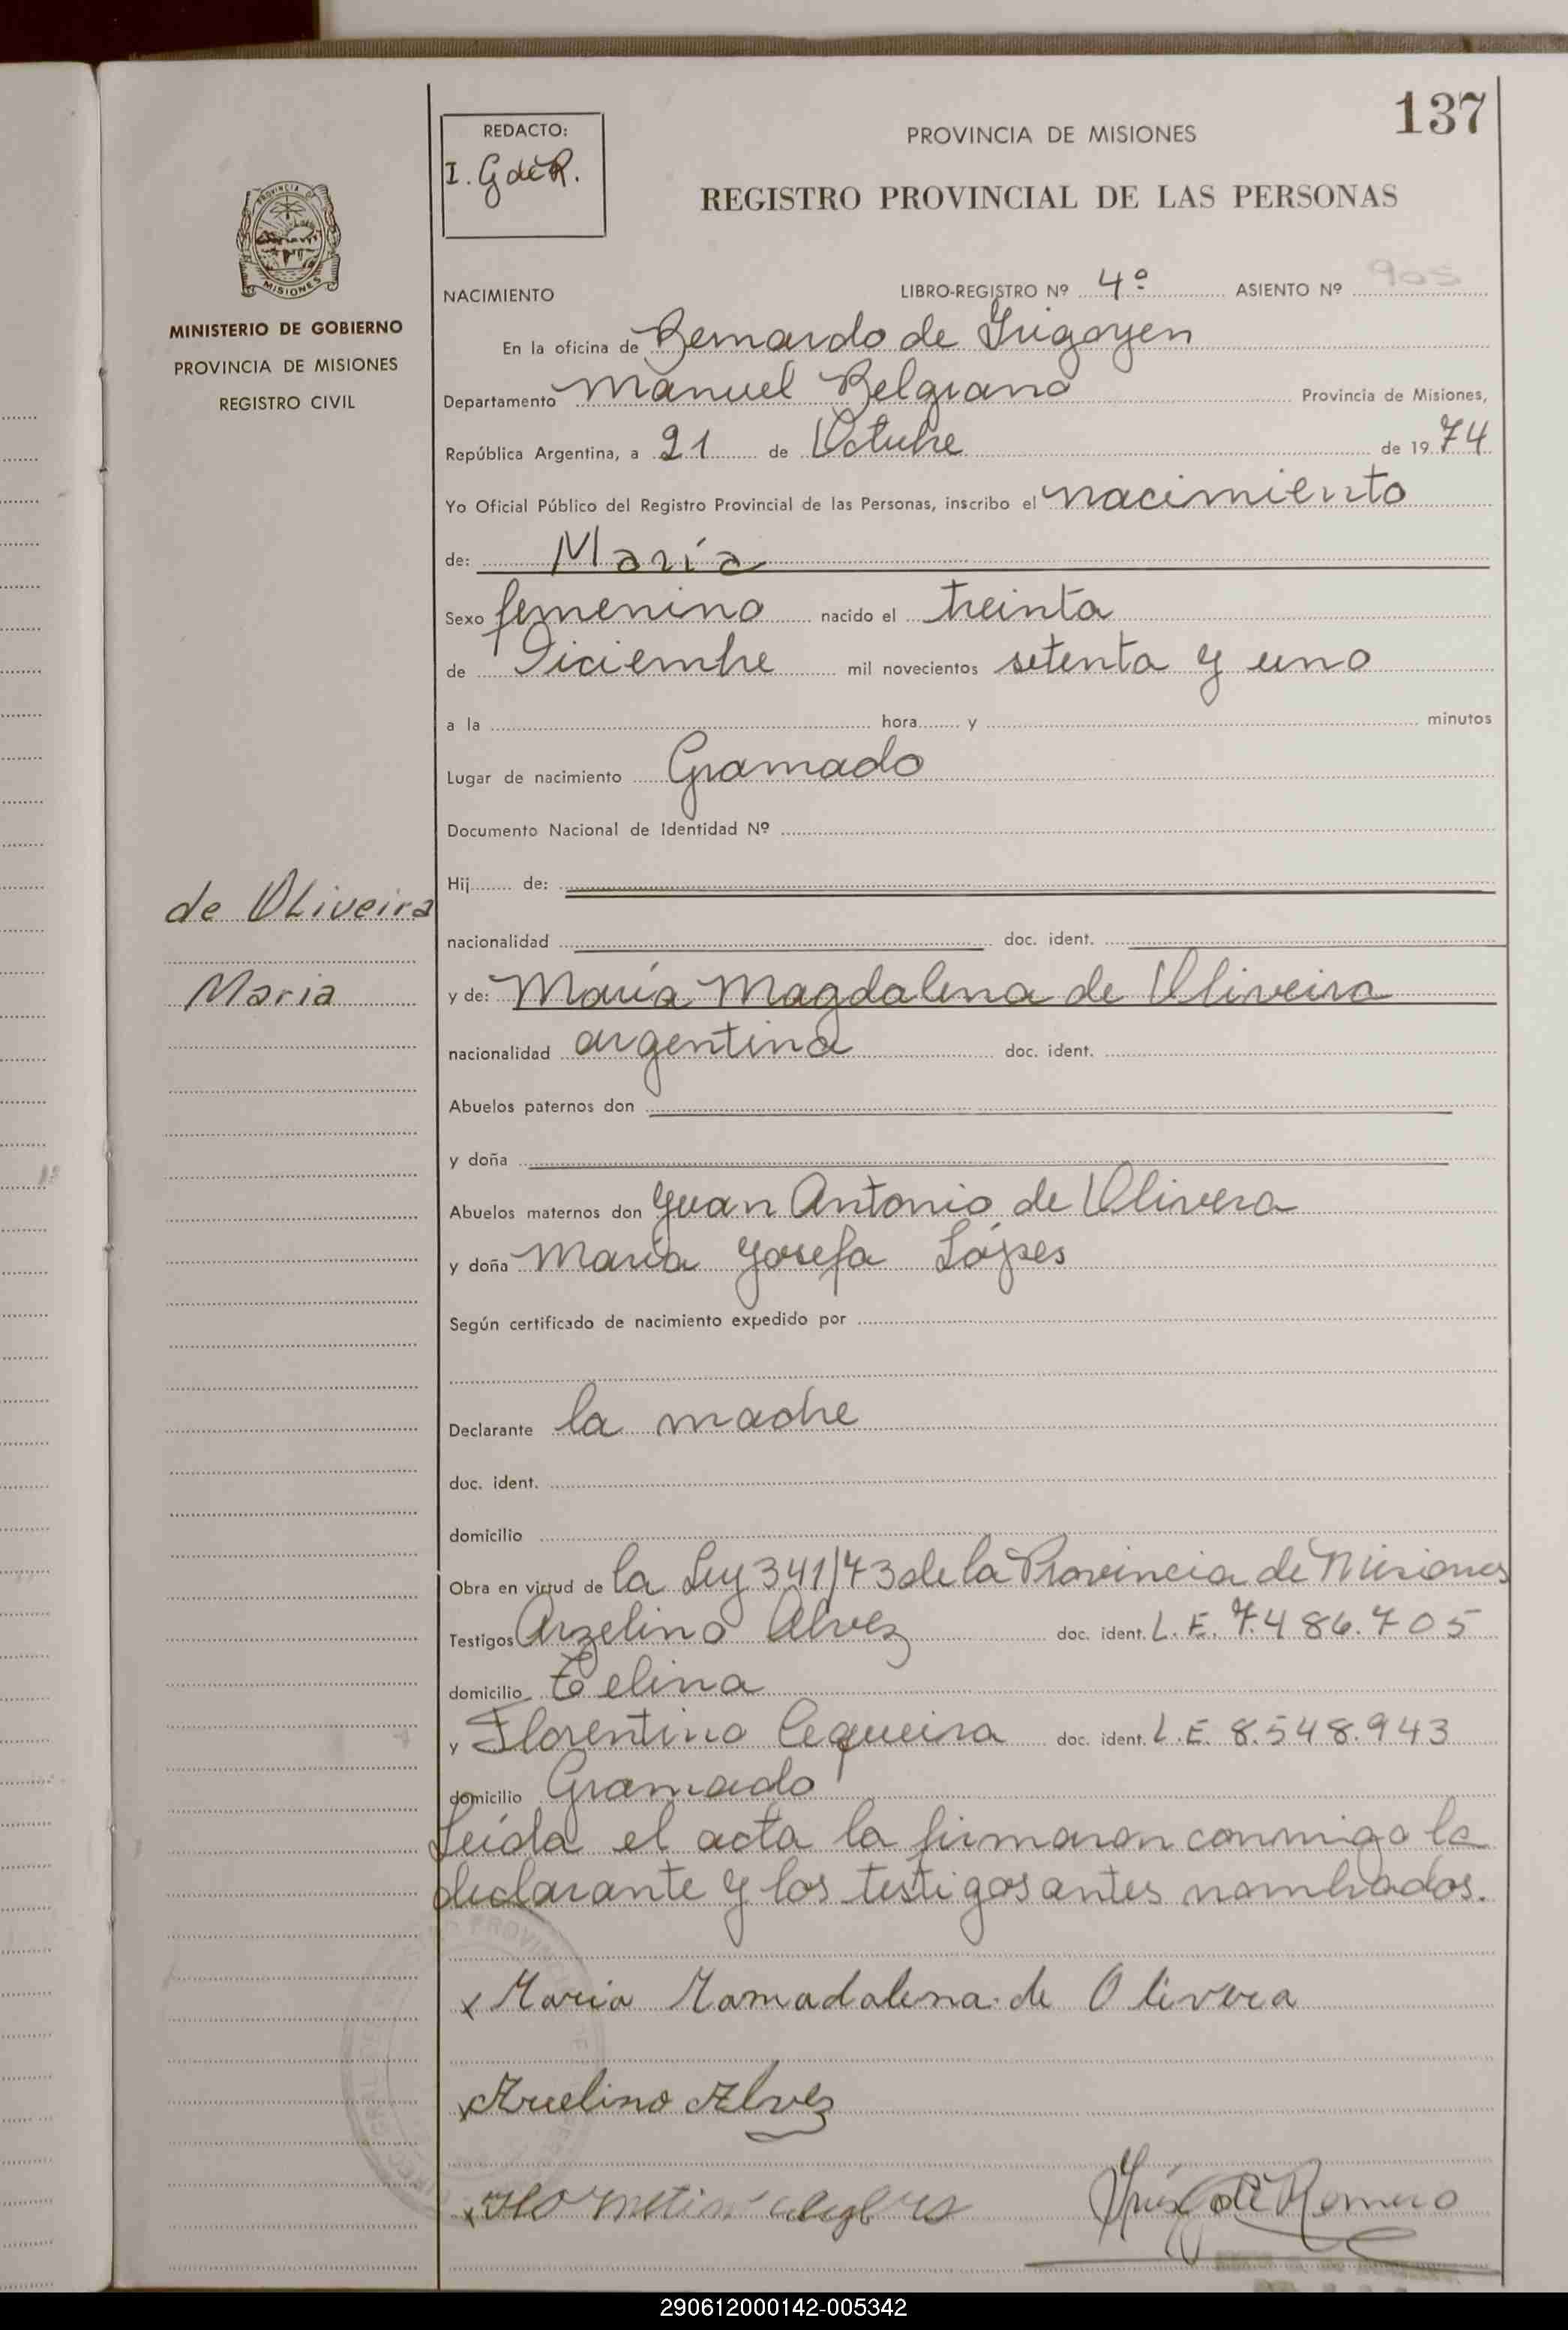 137
REDACTO:
I. G de R.
PROVINCIA DE MISIONES
REGISTRO PROVINCIAL DE LAS PERSONAS
MISIONES
MINISTERIO DE GOBIERNO
PROVINCIA DE MISIONES
REGISTRO CIVIL
NACIMIENTO LIBRO-REGISTRO Nº 4º ASIENTO Nº 905
En la oficina de Bernardo de Irigoyen
Departamento Manuel Belgrano Provincia de Misiones,
República Argentina, a 21 de Octubre de 1974
Yo Oficial Público del Registro Provincial de las Personas, inscribo el nacimiento
de: María
Sexo femenino nacido el treinta
de Diciembre mil novecientos setenta y uno
a la hora y minutos
Lugar de nacimiento Gramado
Documento Nacional de Identidad Nº
Hij de:
de Oliveira
nacionalidad doc. ident.
Maria
y de: María Magdalena de Oliveira
nacionalidad argentina doc. ident.
Abuelos paternos don
y doña
Abuelos maternos don Juan Antonio de Olivera
y doña María Josefa Lópes
Según certificado de nacimiento expedido por
Declarante la madre
doc. ident.
domicilio
Obra en virtud de la Ley 341/73 de la Provincia de Misiones
Testigos Arzelino Alvez doc. ident. L.E. 7.486.705
domicilio Celina
y Florentino Cequeira doc. ident. L.E. 8.548.943
domicilio Gramado
Leída el acta la firmaron conmigo la
declarante y los testigos antes nombrados.
x Maria Mamadalena de Olivera
x Arcelino Alvez
Inés G de Romero
290612000142-005342